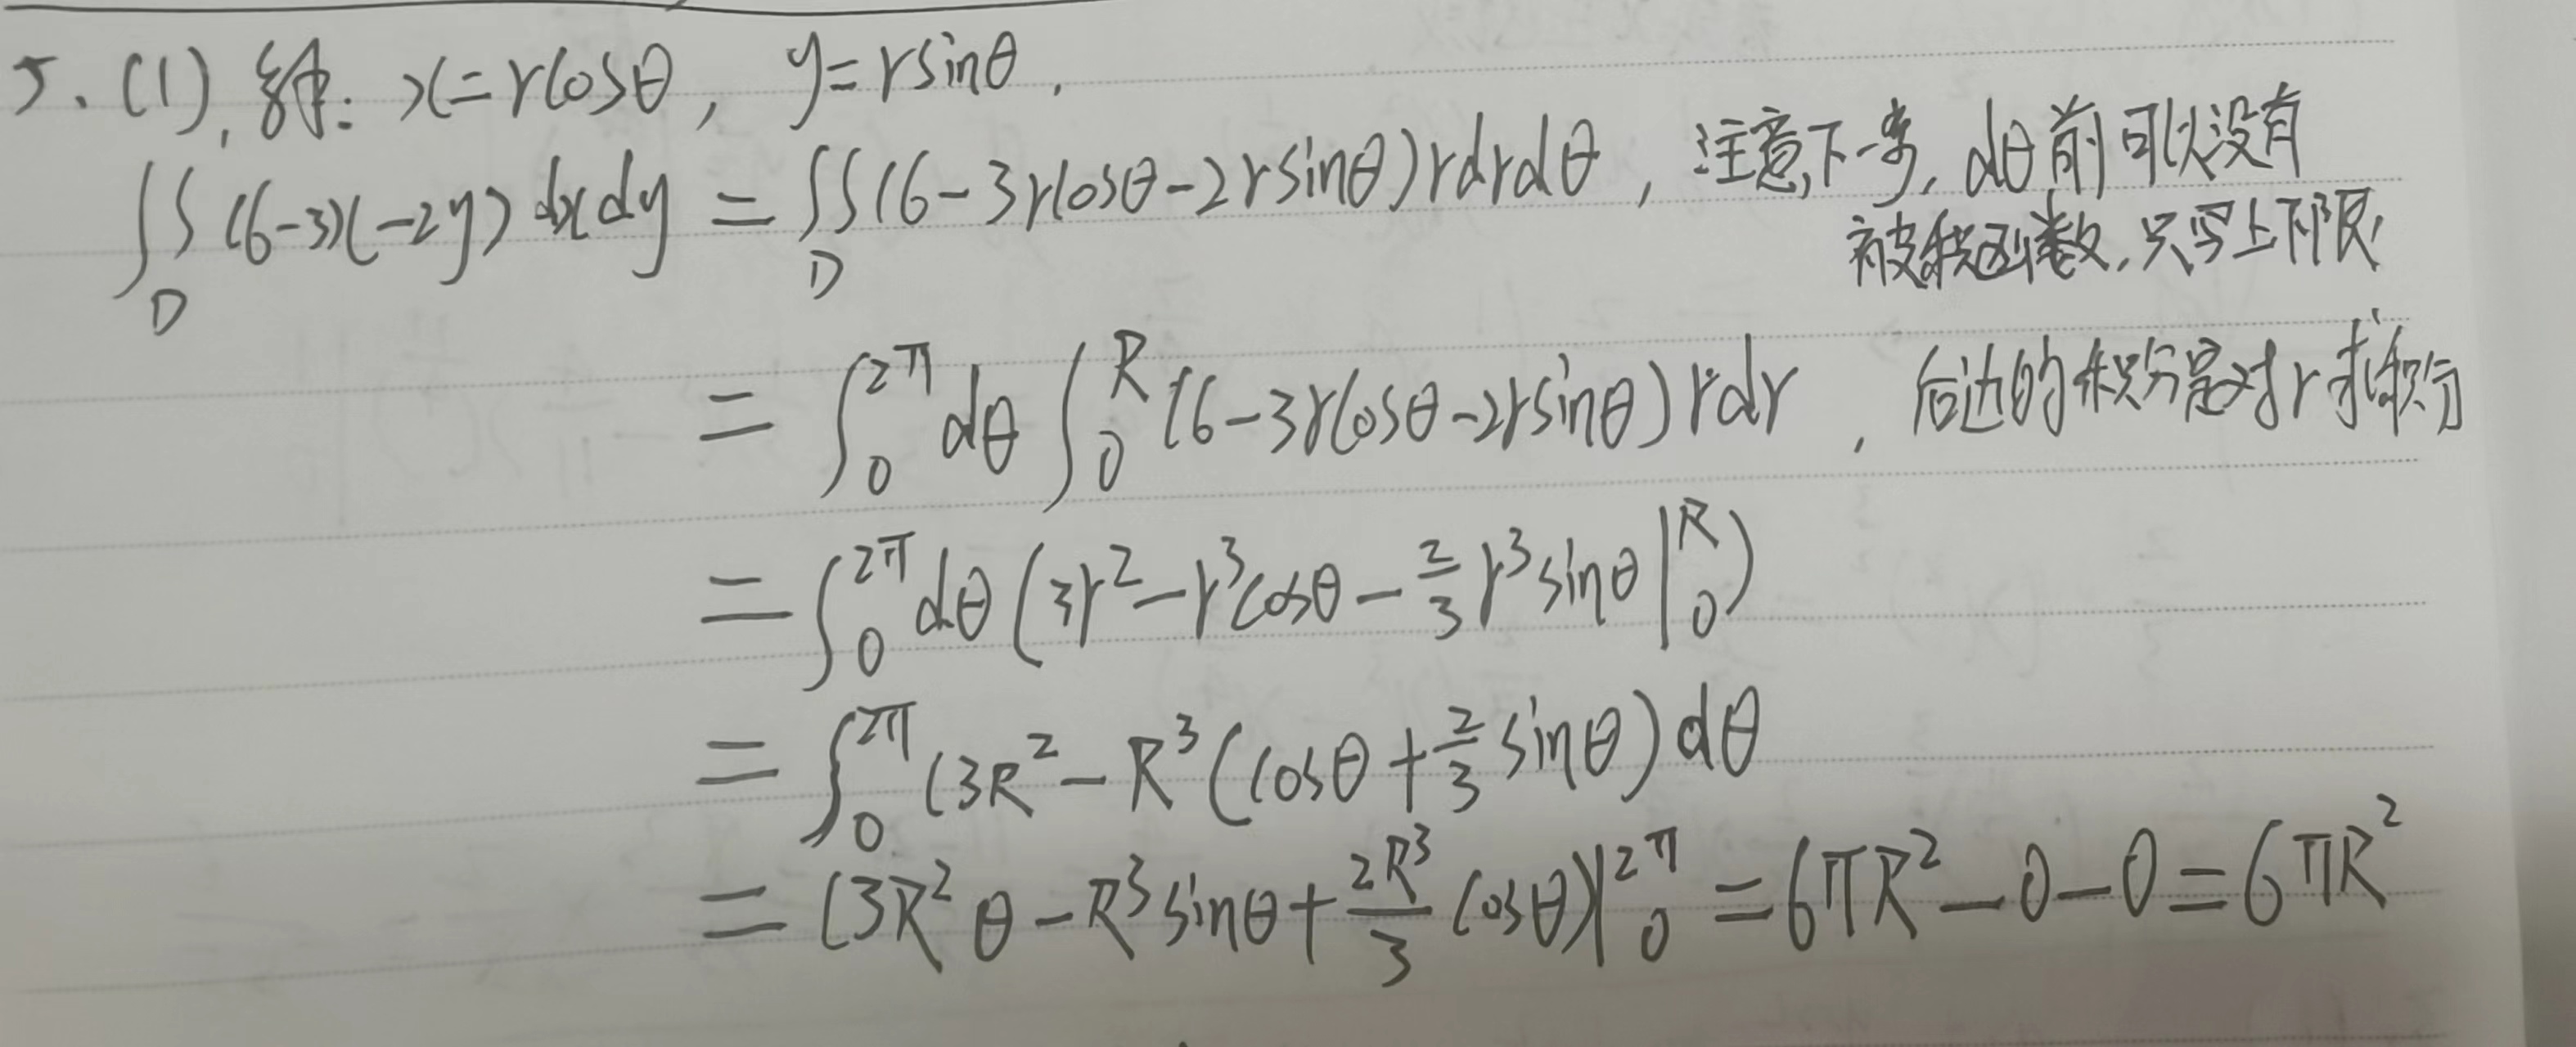 5.(1),解: x=rcosθ, y=rsinθ.
∬_D (6-3x-2y)dxdy = ∬_D (6-3rcosθ-2rsinθ)rdrdθ, 注意,下一步,dθ前可以没有
被积函数,只写上下限,
= ∫_0^{2π} dθ ∫_0^R (6-3rcosθ-2rsinθ)rdr , 后边的积分是对r求积分
= ∫_0^{2π} dθ (3r²-r³cosθ-\frac{2}{3}r³sinθ |_0^R)
= ∫_0^{2π} (3R²-R³(cosθ+\frac{2}{3}sinθ)dθ
= (3R²θ-R³sinθ+\frac{2R³}{3}cosθ)|_0^{2π} = 6πR²-0-0=6πR²